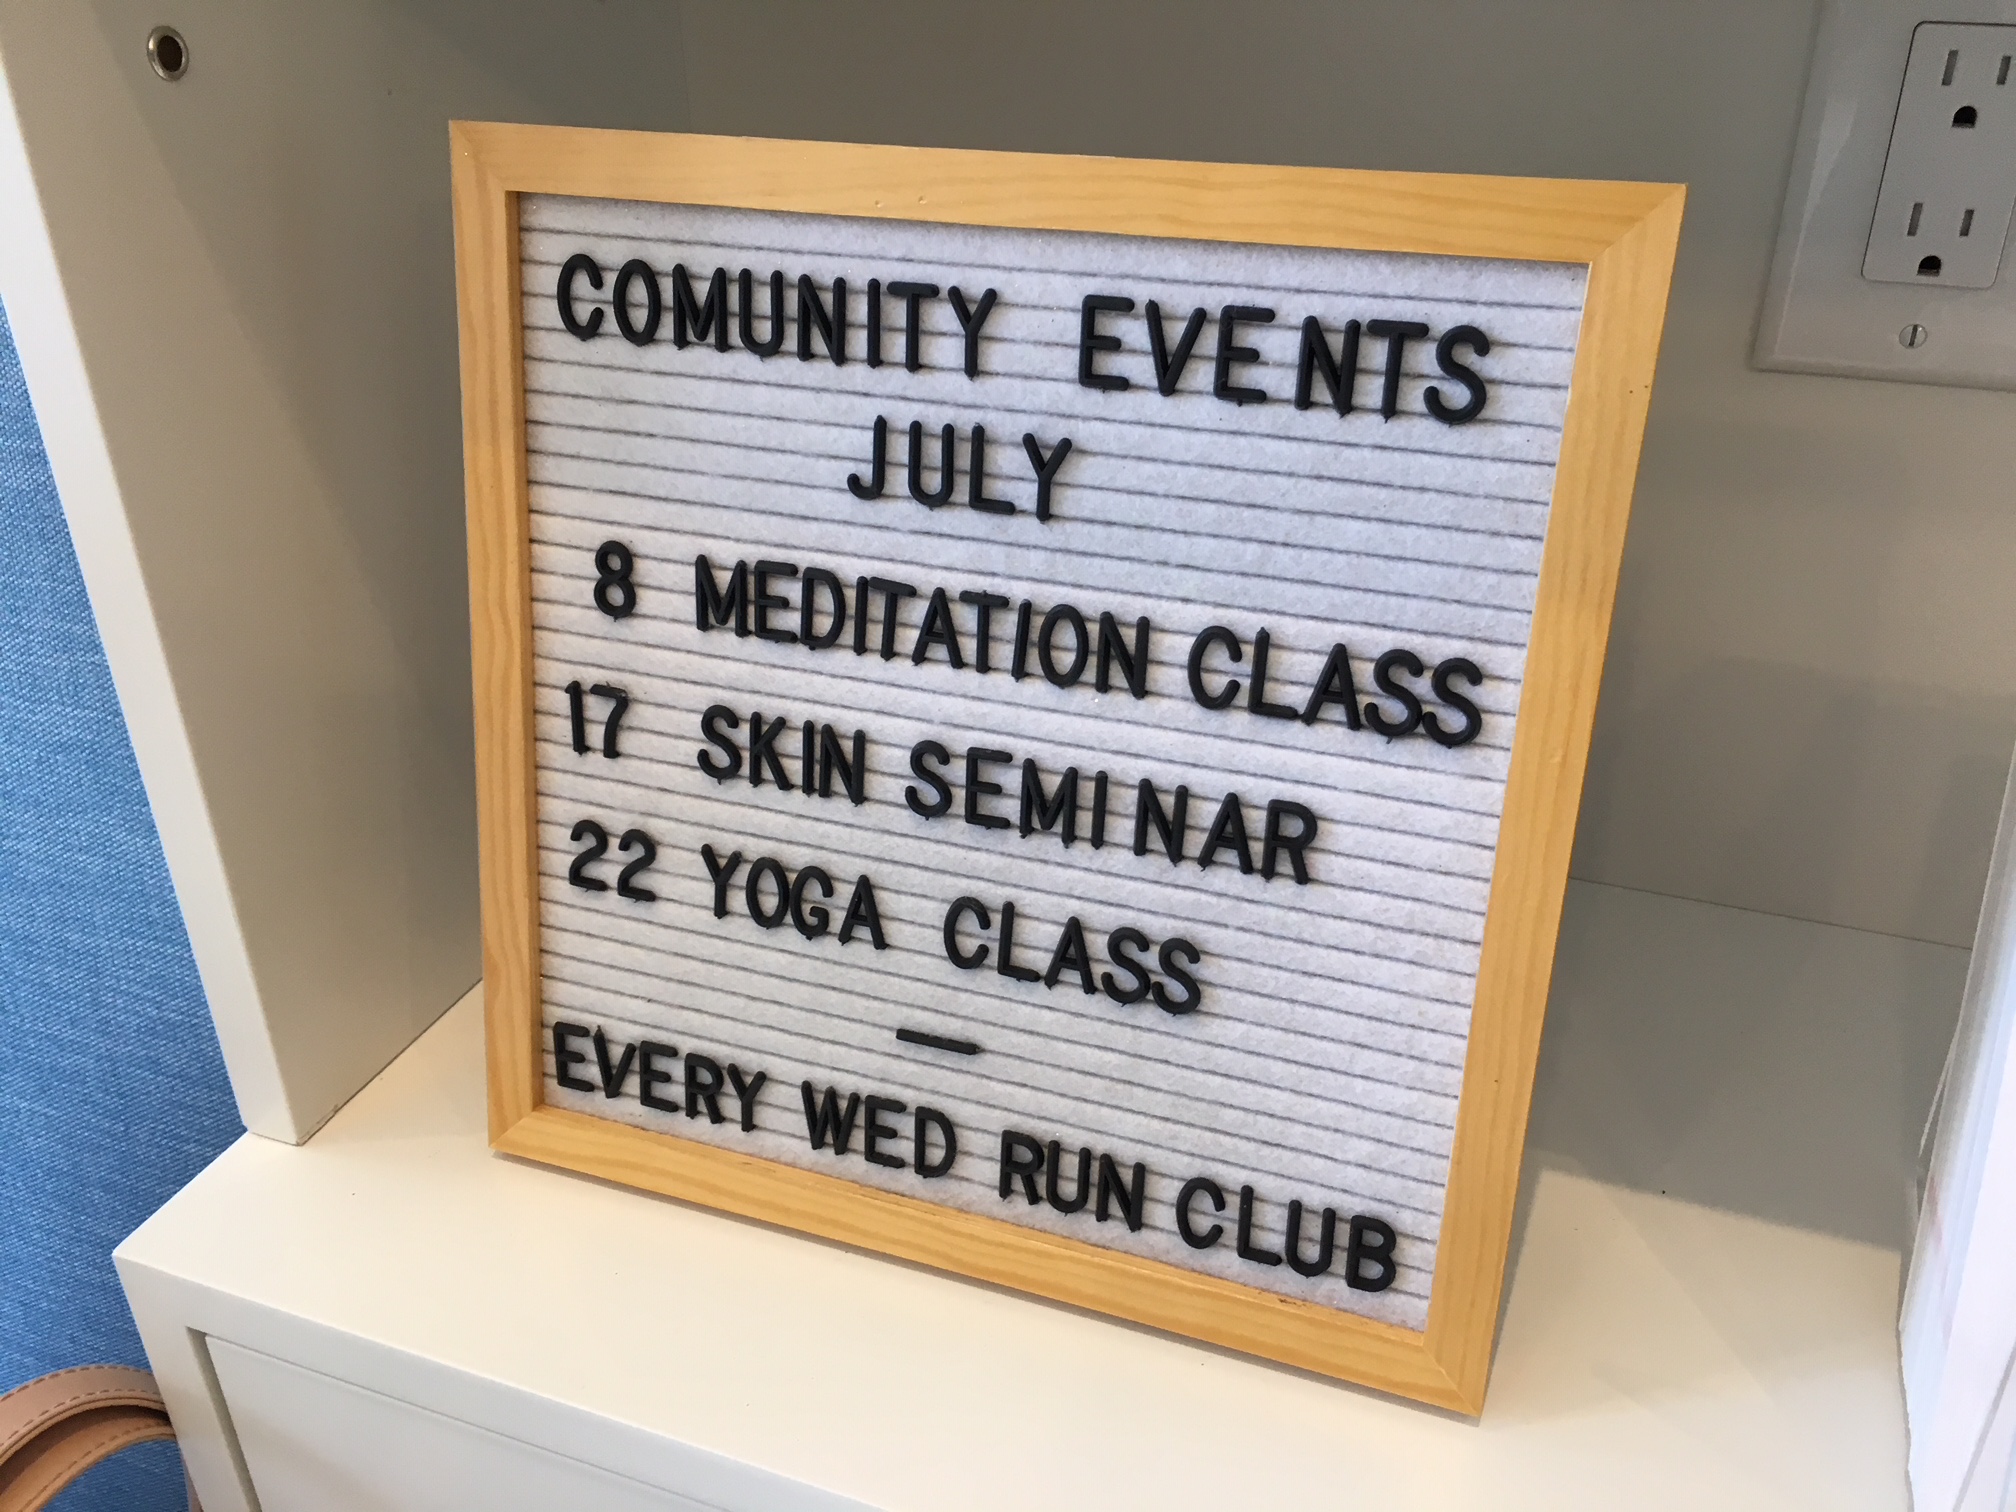 COMUNITY EVENTS
JULY
8 MEDITATION CLASS
17 SKIN SEMINAR
22 YOGA CLASS
—
EVERY WED RUN CLUB